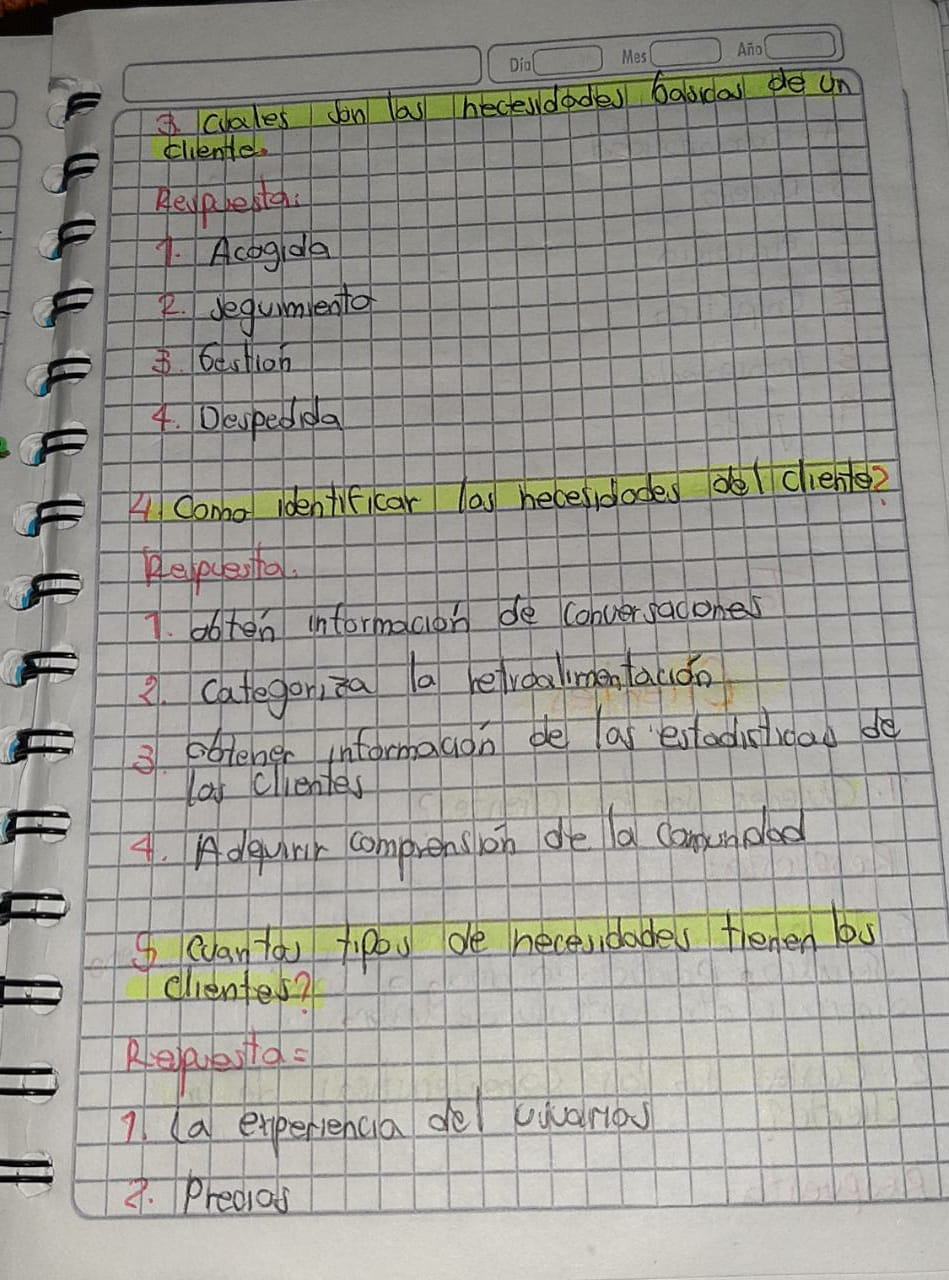 Día Mes Año
3. Cuales son las necesidades basicas de un
cliente.
Respuesta:
1. Acogida
2. seguimiento
3. Gestion
4. Despedida
4. Como identificar las necesidades del cliente?
Respuesta.
1. obtén información de conversaciones
2. categoriza la retroalimentación
3. obtener información de las estadisticas de
los clientes
4. Adquirir comprensión de la comunidad
5 Cuantos tipos de necesidades tienen los
clientes?
Respuesta=
1. La experiencia del usuarios
2. Precios